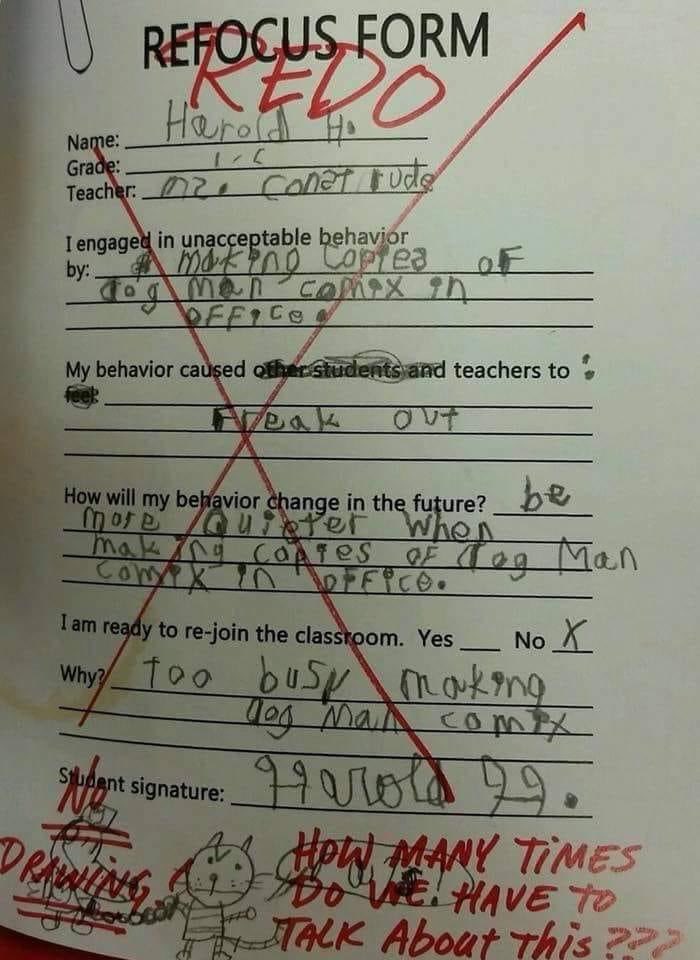 REFOCUS FORM
REDO
Name: Harold H.
Grade: 1-C
Teacher: mz. Construde
I engaged in unacceptable behavior
by: making copies of
dog man comix in
office.
My behavior caused other students and teachers to :
feel:
Freak out
How will my behavior change in the future? be
more Quieter when
making copies of dog Man
comix in office.
I am ready to re-join the classroom. Yes ___ No X
Why? too busy making
dog Man comix
Student signature: Harold H.
No
DRAWING
HOW MANY TIMES
DO WE HAVE TO
TALK About This ???